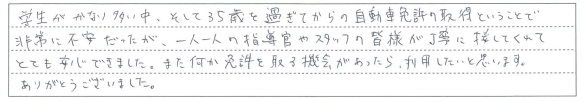 学生がかなり多い中、そして35歳を過ぎてからの自動車免許の取得ということで
非常に不安だったが、一人一人の指導官やスタッフの皆様が丁寧に接してくれて
とても安心できました。また何か免許を取る機会があったら、利用したいと思います。
ありがとうございました。